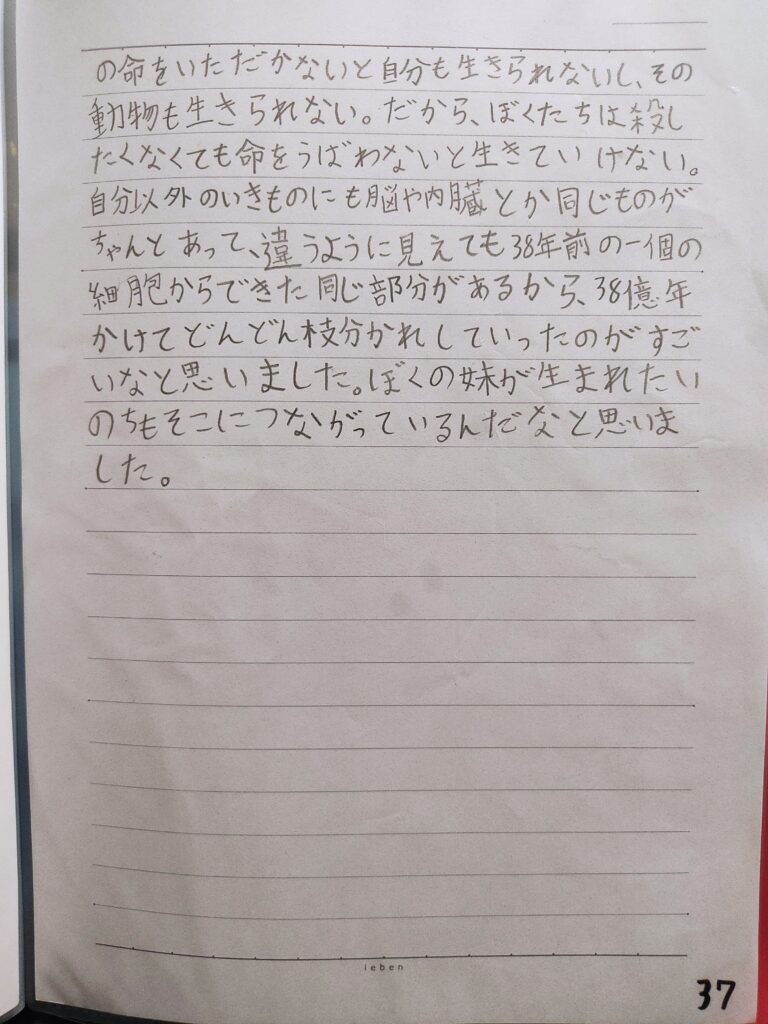 の命をいただかないと自分も生きられないし、その
動物も生きられない。だから、ぼくたちは殺し
たくなくても命をうばわないと生きていけない。
自分以外のいきものにも脳や内臓とか同じものが
ちゃんとあって、違うように見えても38年前の一個の
細胞からできた同じ部分があるから、38億年
かけてどんどん枝分かれしていったのがすご
いなと思いました。ぼくの妹が生まれたい
のちもそこにつながっているんだなと思いま
した。
ieben
37